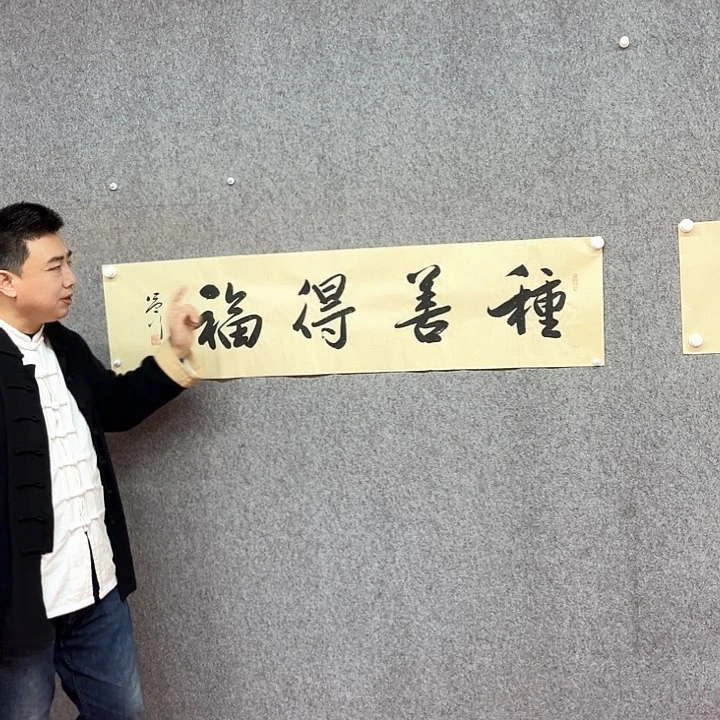 種善得福